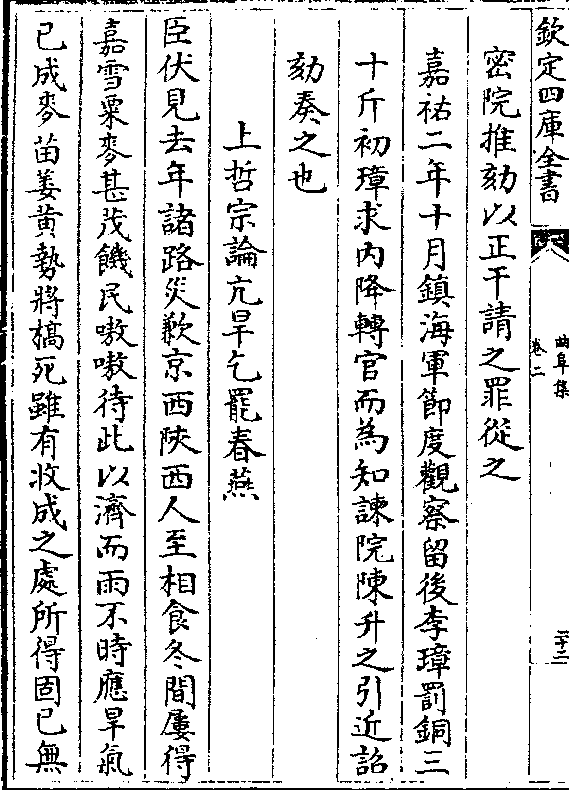 欽定四庫全書
曲阜集
卷二
二十二
密院推劾以正干請之罪從之
嘉祐二年十月鎮海軍節度觀察留後李璋罰銅三
十斤初璋求内降轉官而為知諫院陳升之引近詔
劾奏之也
上哲宗論亢旱乞罷春燕
臣伏見去年諸路災歉京西陜西人至相食冬間屢得
嘉雪粟麥甚茂饑民嗷嗷待此以濟而雨不時應旱氣
已成麥苗萎黄勢將槁死雖有收成之處所得固已無